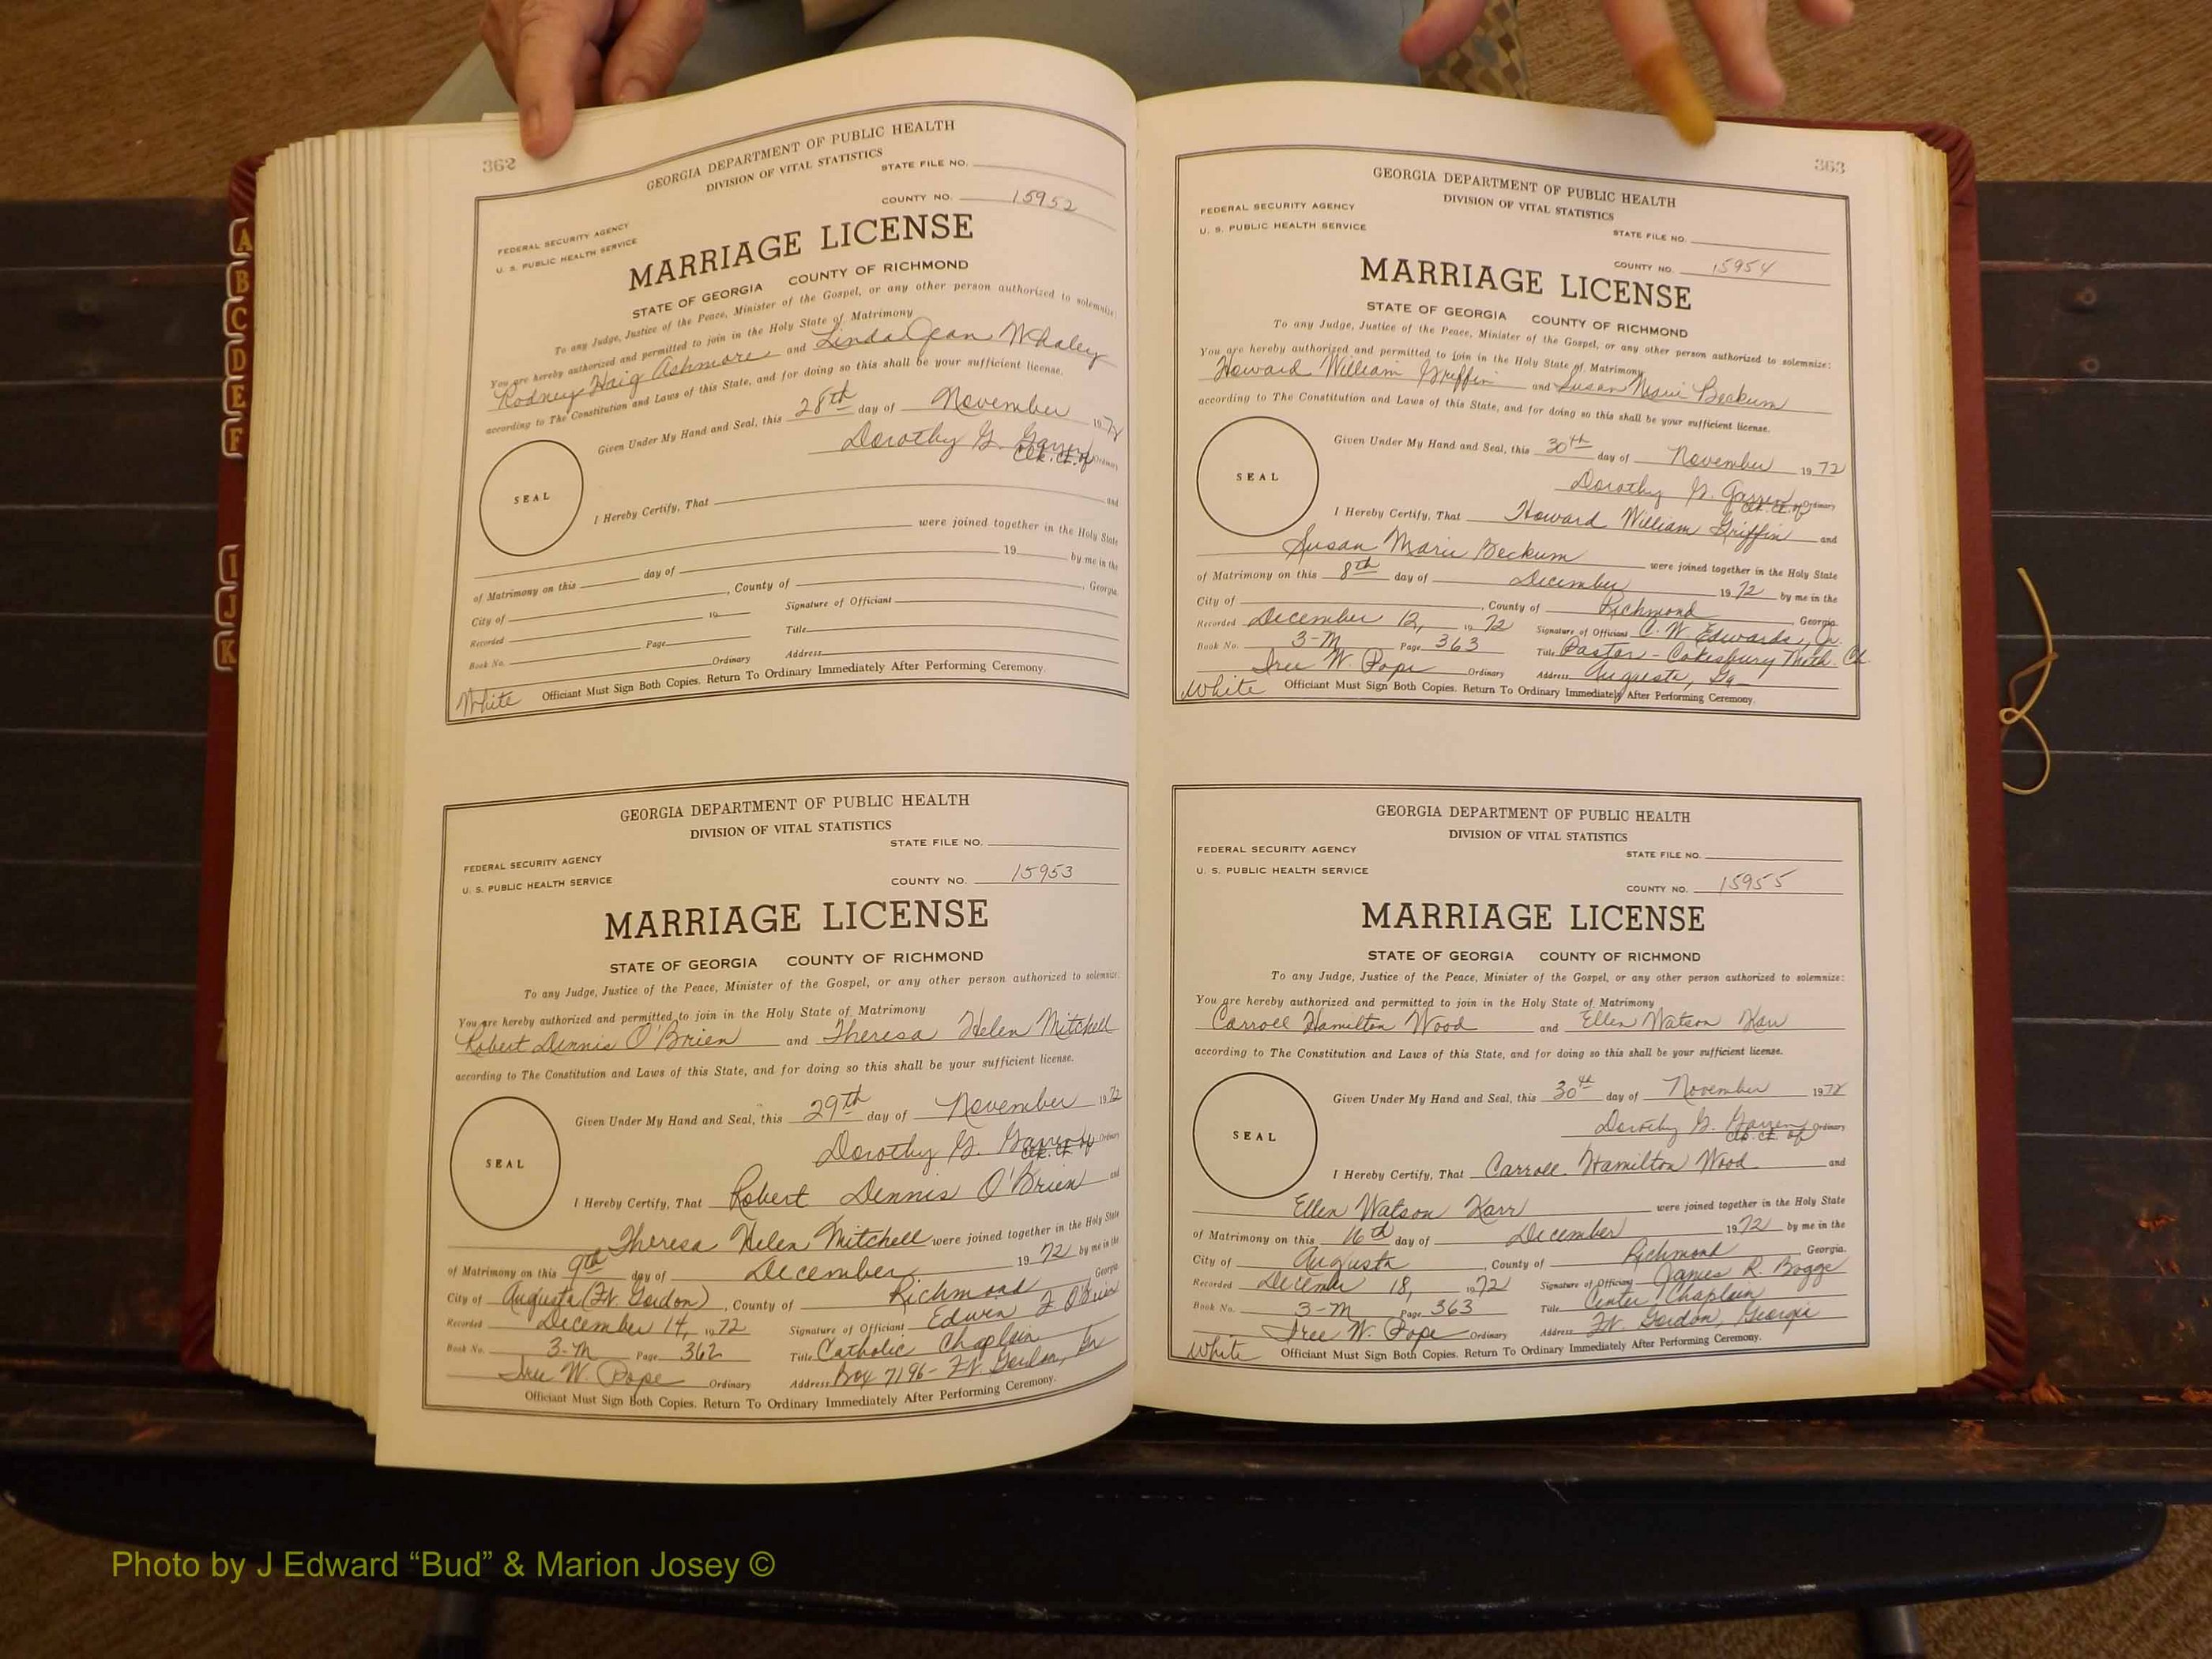 362
GEORGIA DEPARTMENT OF PUBLIC HEALTH
DIVISION OF VITAL STATISTICS
STATE FILE NO.
COUNTY NO. 15952
FEDERAL SECURITY AGENCY
U. S. PUBLIC HEALTH SERVICE
MARRIAGE LICENSE
STATE OF GEORGIA COUNTY OF RICHMOND
To any Judge, Justice of the Peace, Minister of the Gospel, or any other person authorized to solemnize:
You are hereby authorized and permitted to join in the Holy State of Matrimony
Rodney Haig Ashmore and Linda Jean Whaley
according to The Constitution and Laws of this State, and for doing so this shall be your sufficient license.
Given Under My Hand and Seal, this 28th day of November 1972
Dorothy G. Garren Ordinary
Clk. Ct. of
SEAL
I Hereby Certify, That and
were joined together in the Holy State
of Matrimony on this day of 19 by me in the
City of , County of , Georgia.
Recorded 19 Signature of Officiant
Book No. Page Title
Ordinary Address
White Officiant Must Sign Both Copies. Return To Ordinary Immediately After Performing Ceremony.
GEORGIA DEPARTMENT OF PUBLIC HEALTH
DIVISION OF VITAL STATISTICS
STATE FILE NO.
FEDERAL SECURITY AGENCY
U. S. PUBLIC HEALTH SERVICE
COUNTY NO. 15953
MARRIAGE LICENSE
STATE OF GEORGIA COUNTY OF RICHMOND
To any Judge, Justice of the Peace, Minister of the Gospel, or any other person authorized to solemnize:
You are hereby authorized and permitted to join in the Holy State of Matrimony
Robert Dennis O'Brien and Theresa Helen Mitchell
according to The Constitution and Laws of this State, and for doing so this shall be your sufficient license.
Given Under My Hand and Seal, this 29th day of November 1972
Dorothy G. Garren Ordinary
Clk. Ct. of
SEAL
I Hereby Certify, That Robert Dennis O'Brien and
Theresa Helen Mitchell were joined together in the Holy State
of Matrimony on this 9th day of December 1972 by me in the
City of Augusta (Ft. Gordon), County of Richmond Georgia
Recorded December 14, 1972 Signature of Officiant Edwin F O'Brien
Book No. 3-M Page 362 Title Catholic Chaplain
Iree W. Pope Ordinary Address Box 7196- Ft. Gordon, Ga
Officiant Must Sign Both Copies. Return To Ordinary Immediately After Performing Ceremony.
363
GEORGIA DEPARTMENT OF PUBLIC HEALTH
DIVISION OF VITAL STATISTICS
FEDERAL SECURITY AGENCY
U. S. PUBLIC HEALTH SERVICE
STATE FILE NO.
COUNTY NO. 15954
MARRIAGE LICENSE
STATE OF GEORGIA COUNTY OF RICHMOND
To any Judge, Justice of the Peace, Minister of the Gospel, or any other person authorized to solemnize:
You are hereby authorized and permitted to join in the Holy State of Matrimony
Howard William Griffin and Susan Marie Beckum
according to The Constitution and Laws of this State, and for doing so this shall be your sufficient license.
Given Under My Hand and Seal, this 30th day of November 1972
Dorothy G. Garren Ordinary
Clk. Ct. of
SEAL
I Hereby Certify, That Howard William Griffin and
Susan Marie Beckum were joined together in the Holy State
of Matrimony on this 8th day of December 1972 by me in the
City of , County of Richmond Georgia.
Recorded December 12, 1972 Signature of Officiant C. W. Edwards, Jr.
Book No. 3-M Page 363 Title Pastor - Cokesbury Meth. Ch
Iree W. Pope Ordinary Address Augusta, Ga
White Officiant Must Sign Both Copies. Return To Ordinary Immediately After Performing Ceremony.
GEORGIA DEPARTMENT OF PUBLIC HEALTH
DIVISION OF VITAL STATISTICS
FEDERAL SECURITY AGENCY
U. S. PUBLIC HEALTH SERVICE
STATE FILE NO.
COUNTY NO. 15955
MARRIAGE LICENSE
STATE OF GEORGIA COUNTY OF RICHMOND
To any Judge, Justice of the Peace, Minister of the Gospel, or any other person authorized to solemnize:
You are hereby authorized and permitted to join in the Holy State of Matrimony
Carroll Hamilton Wood and Ellen Watson Karr
according to The Constitution and Laws of this State, and for doing so this shall be your sufficient license.
Given Under My Hand and Seal, this 30th day of November 1972
Dorothy G. Garren Ordinary
Clk. Ct. of
SEAL
I Hereby Certify, That Carroll Hamilton Wood and
Ellen Watson Karr were joined together in the Holy State
of Matrimony on this 16th day of December 1972 by me in the
City of Augusta, County of Richmond Georgia.
Recorded 18, 1972 Signature of Officiant James R. Boggs
Book No. 3-M Page 363 Title Center Chaplain
Iree W. Pope Ordinary Address Ft. Gordon, Georgia
White Officiant Must Sign Both Copies. Return To Ordinary Immediately After Performing Ceremony.
A
B
C
D
E
F
I
J
K
Photo by J Edward “Bud” & Marion Josey ©